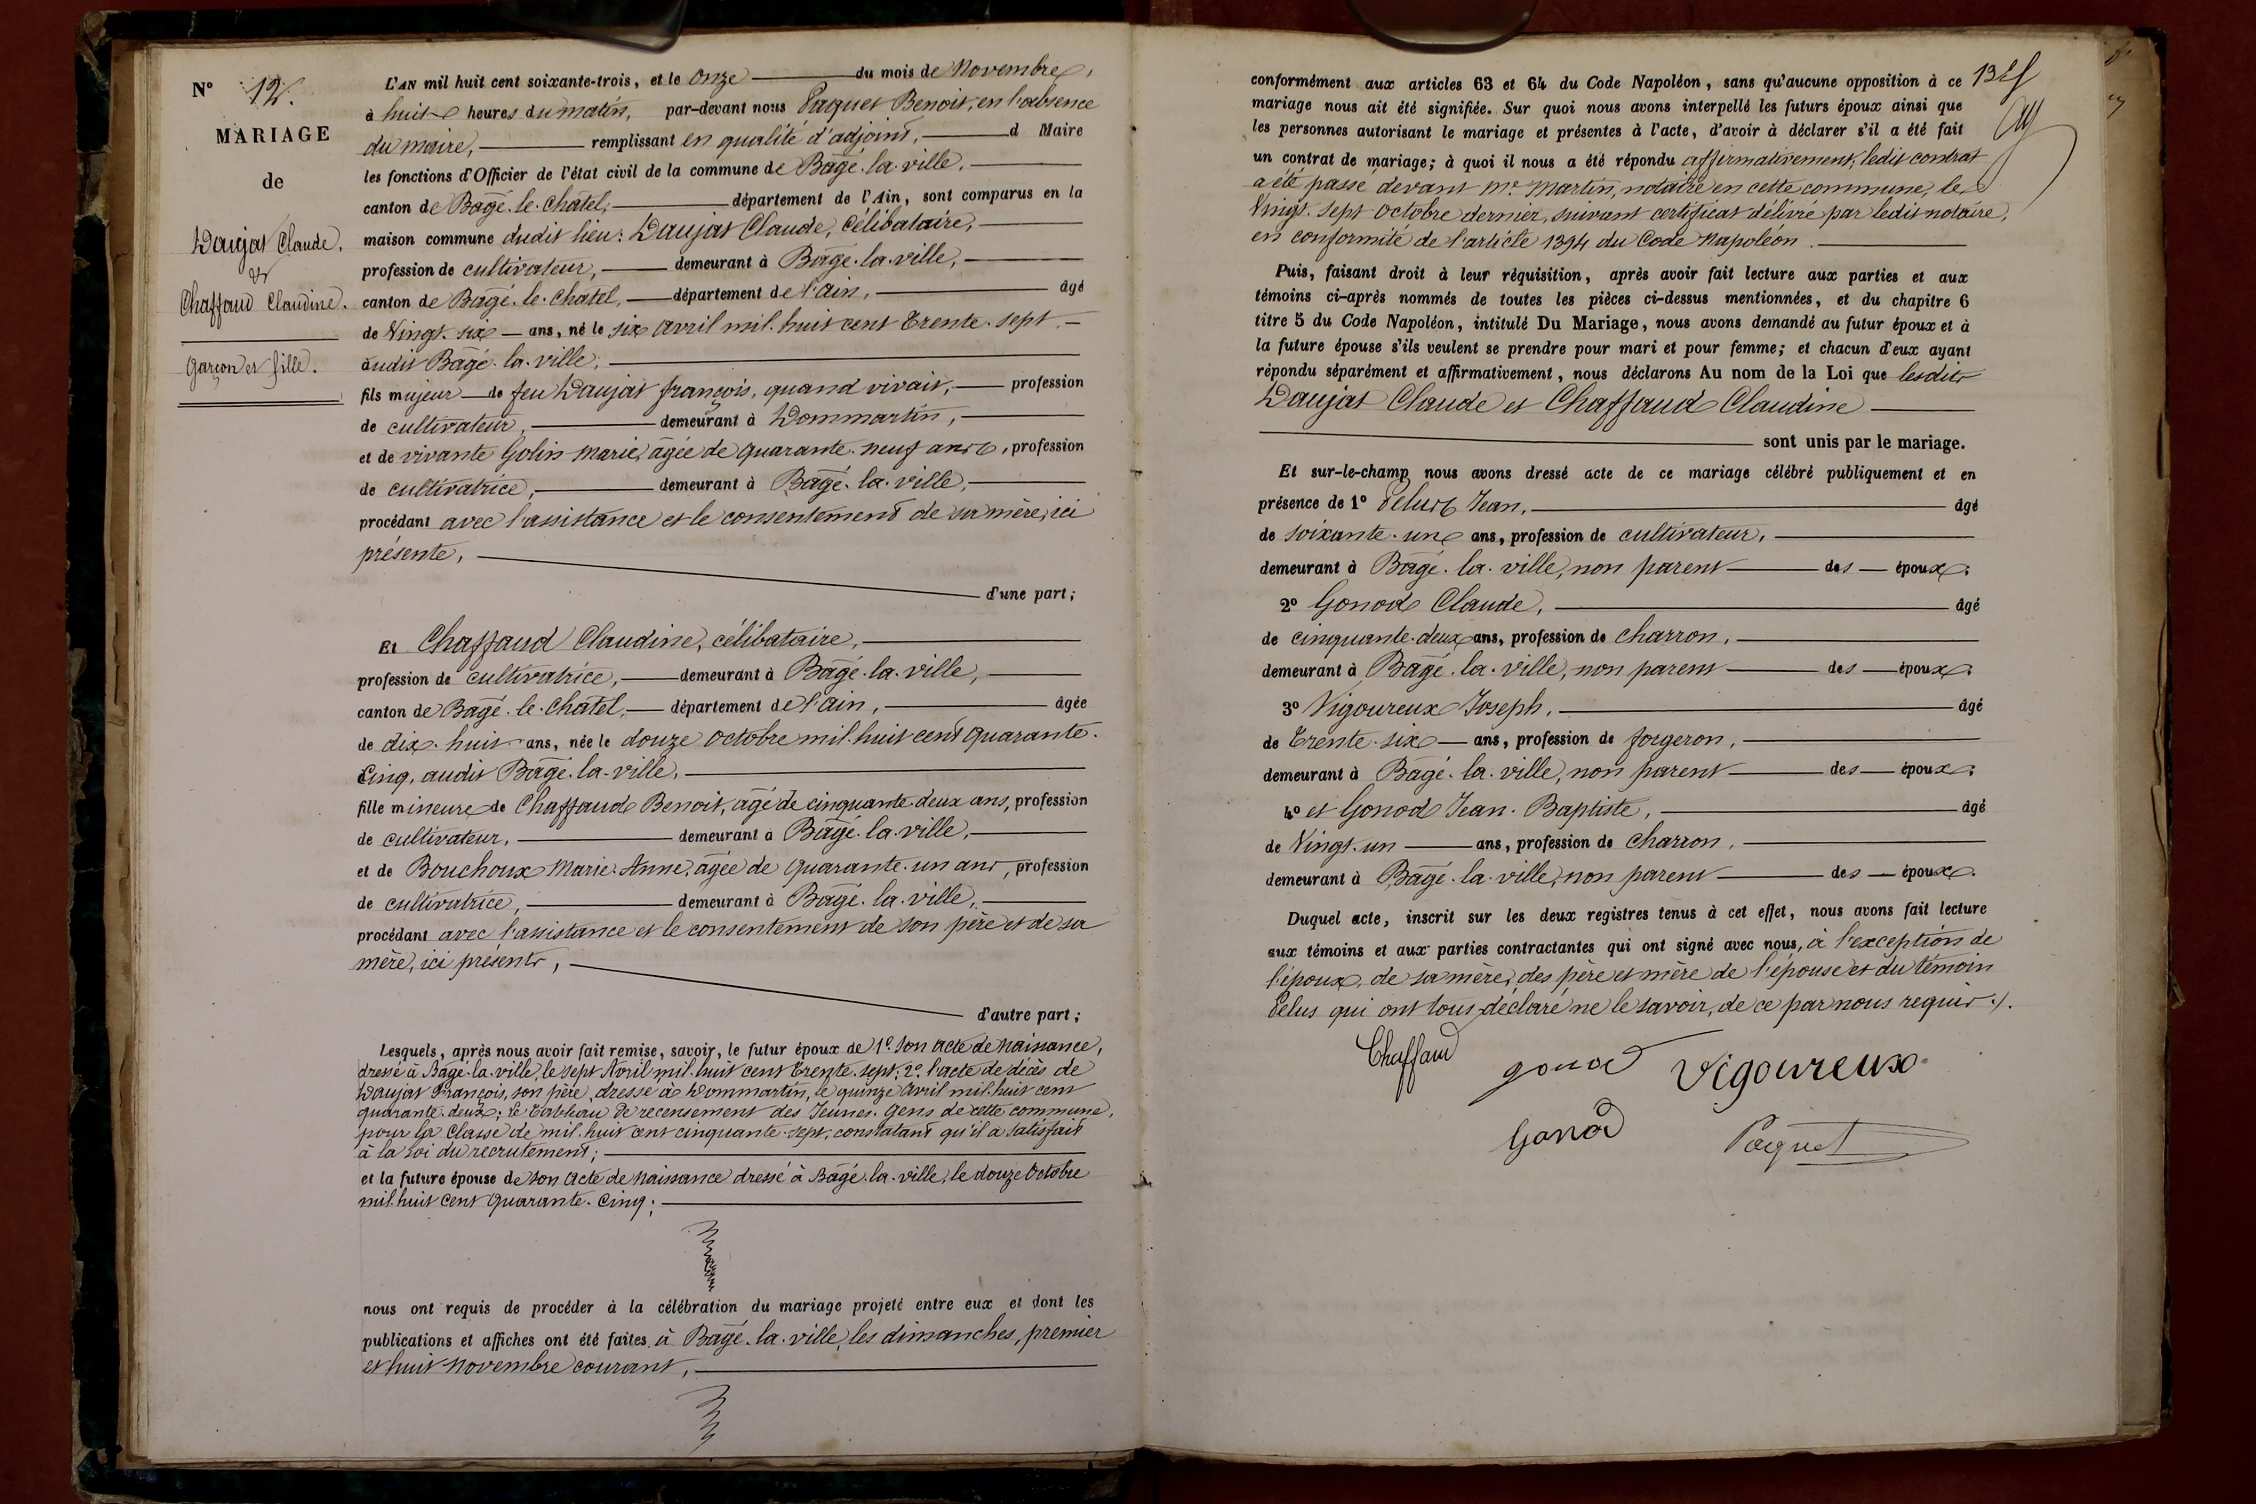 N° 12.
MARIAGE
de
Daujat Claude,
et
Chaffaud Claudine.
Garçon et fille.
L'AN mil huit cent soixante-trois, et le onze du mois de Novembre,
à huit heures du matin, par-devant nous Paquet Benoit, en l'absence
du maire, remplissant en qualité d'adjoint, d Maire
les fonctions d'Officier de l'état civil de la commune de Bâgé-la-ville,
canton de Bâgé-le-Châtel, département de l'Ain, sont comparus en la
maison commune dudit lieu: Daujat Claude, célibataire,
profession de cultivateur, demeurant à Bâgé-la-ville,
canton de Bâgé-le-Châtel, département de l'ain, âgé
de Vingt-six ans, né le six avril mil-huit cent trente-sept
audit Bâgé-la-ville,
fils majeur de feu Daujat françois, quand vivait, profession
de cultivateur, demeurant à Dommartin,
et de vivante Golin Marie, âgée de quarante-neuf ans, profession
de cultivatrice, demeurant à Bâgé-la-ville,
procédant avec l'assistance et le consentement de sa mère, ici
présente,
d'une part;
Et Chaffaud Claudine, célibataire,
profession de cultivatrice, demeurant à Bâgé-la-ville,
canton de Bâgé-le-Châtel, département de l'ain, âgée
de dix-huit ans, née le douze Octobre mil-huit cent quarante-
Cinq, audit Bâgé-la-ville,
fille mineure de Chaffaud Benoit, âgé de cinquante-deux ans, profession
de cultivateur, demeurant à Bâgé-la-ville,
et de Bouchoux Marie-Anne, âgée de quarante-un ans, profession
de cultivatrice, demeurant à Bâgé-la-ville,
procédant avec l'assistance et le consentement de son père et de sa
mère, ici présents,
d'autre part;
Lesquels, après nous avoir fait remise, savoir, le futur époux de 1° son acte de naissance,
dressé à Bâgé-la-ville, le sept Avril mil-huit cent trente-sept; 2° l'acte de décès de
Daujat François, son père, dressé à Dommartin, le quinze avril mil-huit cent
quarante-deux; le Tableau de recensement des Jeunes-gens de cette commune,
pour la Classe de mil-huit cent cinquante-sept, constatant qu'il a satisfait
à la Loi du recrutement;
et la future épouse de son acte de naissance dressé à Bâgé-la-ville, le douze Octobre
mil-huit cent quarante-Cinq;
nous ont requis de procéder à la célébration du mariage projeté entre eux et dont les
publications et affiches ont été faites à Bâgé-la-ville, les dimanches, premier
et huit novembre courant,
conformément aux articles 63 et 64 du Code Napoléon, sans qu'aucune opposition à ce
mariage nous ait été signifiée. Sur quoi nous avons interpellé les futurs époux ainsi que
les personnes autorisant le mariage et présentes à l'acte, d'avoir à déclarer s'il a été fait
un contrat de mariage; à quoi il nous a été répondu affirmativement, ledit contrat
a été passé devant Me Martin, notaire en cette commune, le
Vingt-sept Octobre dernier, suivant certificat délivré par ledit notaire,
en conformité de l'article 1394 du Code Napoléon.
Puis, faisant droit à leur réquisition, après avoir fait lecture aux parties et aux
témoins ci-après nommés de toutes les pièces ci-dessus mentionnées, et du chapitre 6
titre 5 du Code Napoléon, intitulé Du Mariage, nous avons demandé au futur époux et à
la future épouse s'ils veulent se prendre pour mari et pour femme; et chacun d'eux ayant
répondu séparément et affirmativement, nous déclarons Au nom de la Loi que lesdits
Daujat Claude et Chaffaud Claudine
sont unis par le mariage.
Et sur-le-champ nous avons dressé acte de ce mariage célébré publiquement et en
présence de 1° Pelus Jean, âgé
de soixante-un ans, profession de cultivateur,
demeurant à Bâgé-la-ville, non parent des époux;
2° Gonod Claude, âgé
de cinquante-deux ans, profession de charron,
demeurant à Bâgé-la-ville, non parent des époux;
3° Vigoureux Joseph, âgé
de trente-six ans, profession de forgeron,
demeurant à Bâgé-la-ville, non parent des époux;
4° et Gonod Jean-Baptiste, âgé
de Vingt-un ans, profession de charron,
demeurant à Bâgé-la-ville, non parent des époux.
Duquel acte, inscrit sur les deux registres tenus à cet effet, nous avons fait lecture
aux témoins et aux parties contractantes qui ont signé avec nous, à l'exception de
l'époux, de sa mère, des père et mère de l'épouse et du témoin
Pelus qui ont tous déclaré ne le savoir, de ce par nous requis./.
Chaffaud
gonod
Vigoureux
Gonod
Paquet